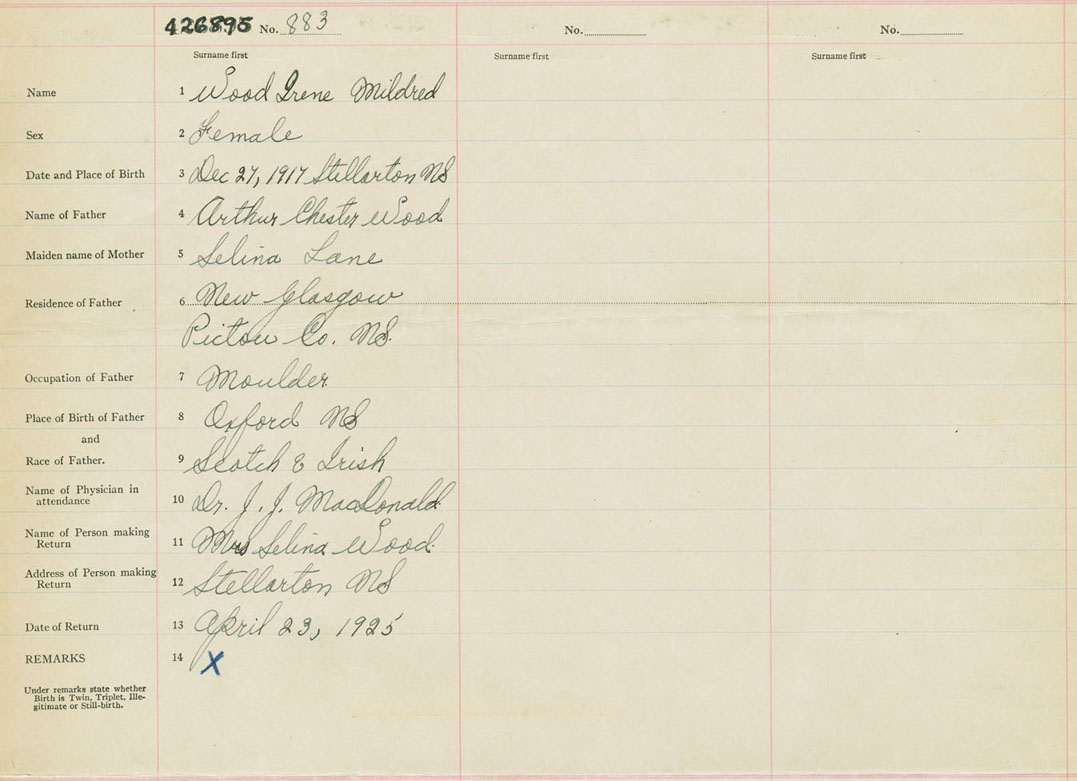 426895 No. 883 No. No.
Surname first Surname first Surname first
Name 1 Wood Irene Mildred
Sex 2 Female
Date and Place of Birth 3 Dec 27, 1917 Stellarton NS
Name of Father 4 Arthur Chester Wood
Maiden name of Mother 5 Selina Lane
Residence of Father 6 New Glasgow
Pictou Co. NS.
Occupation of Father 7 Moulder
Place of Birth of Father 8 Oxford NS
and
Race of Father. 9 Scotch & Irish
Name of Physician in
attendance 10 Dr. J. J. MacDonald
Name of Person making
Return 11 Mrs Selina Wood.
Address of Person making
Return 12 Stellarton NS
Date of Return 13 April 23, 1925
REMARKS 14 X
Under remarks state whether
Birth is Twin, Triplet, Ille-
gitimate or Still-birth.